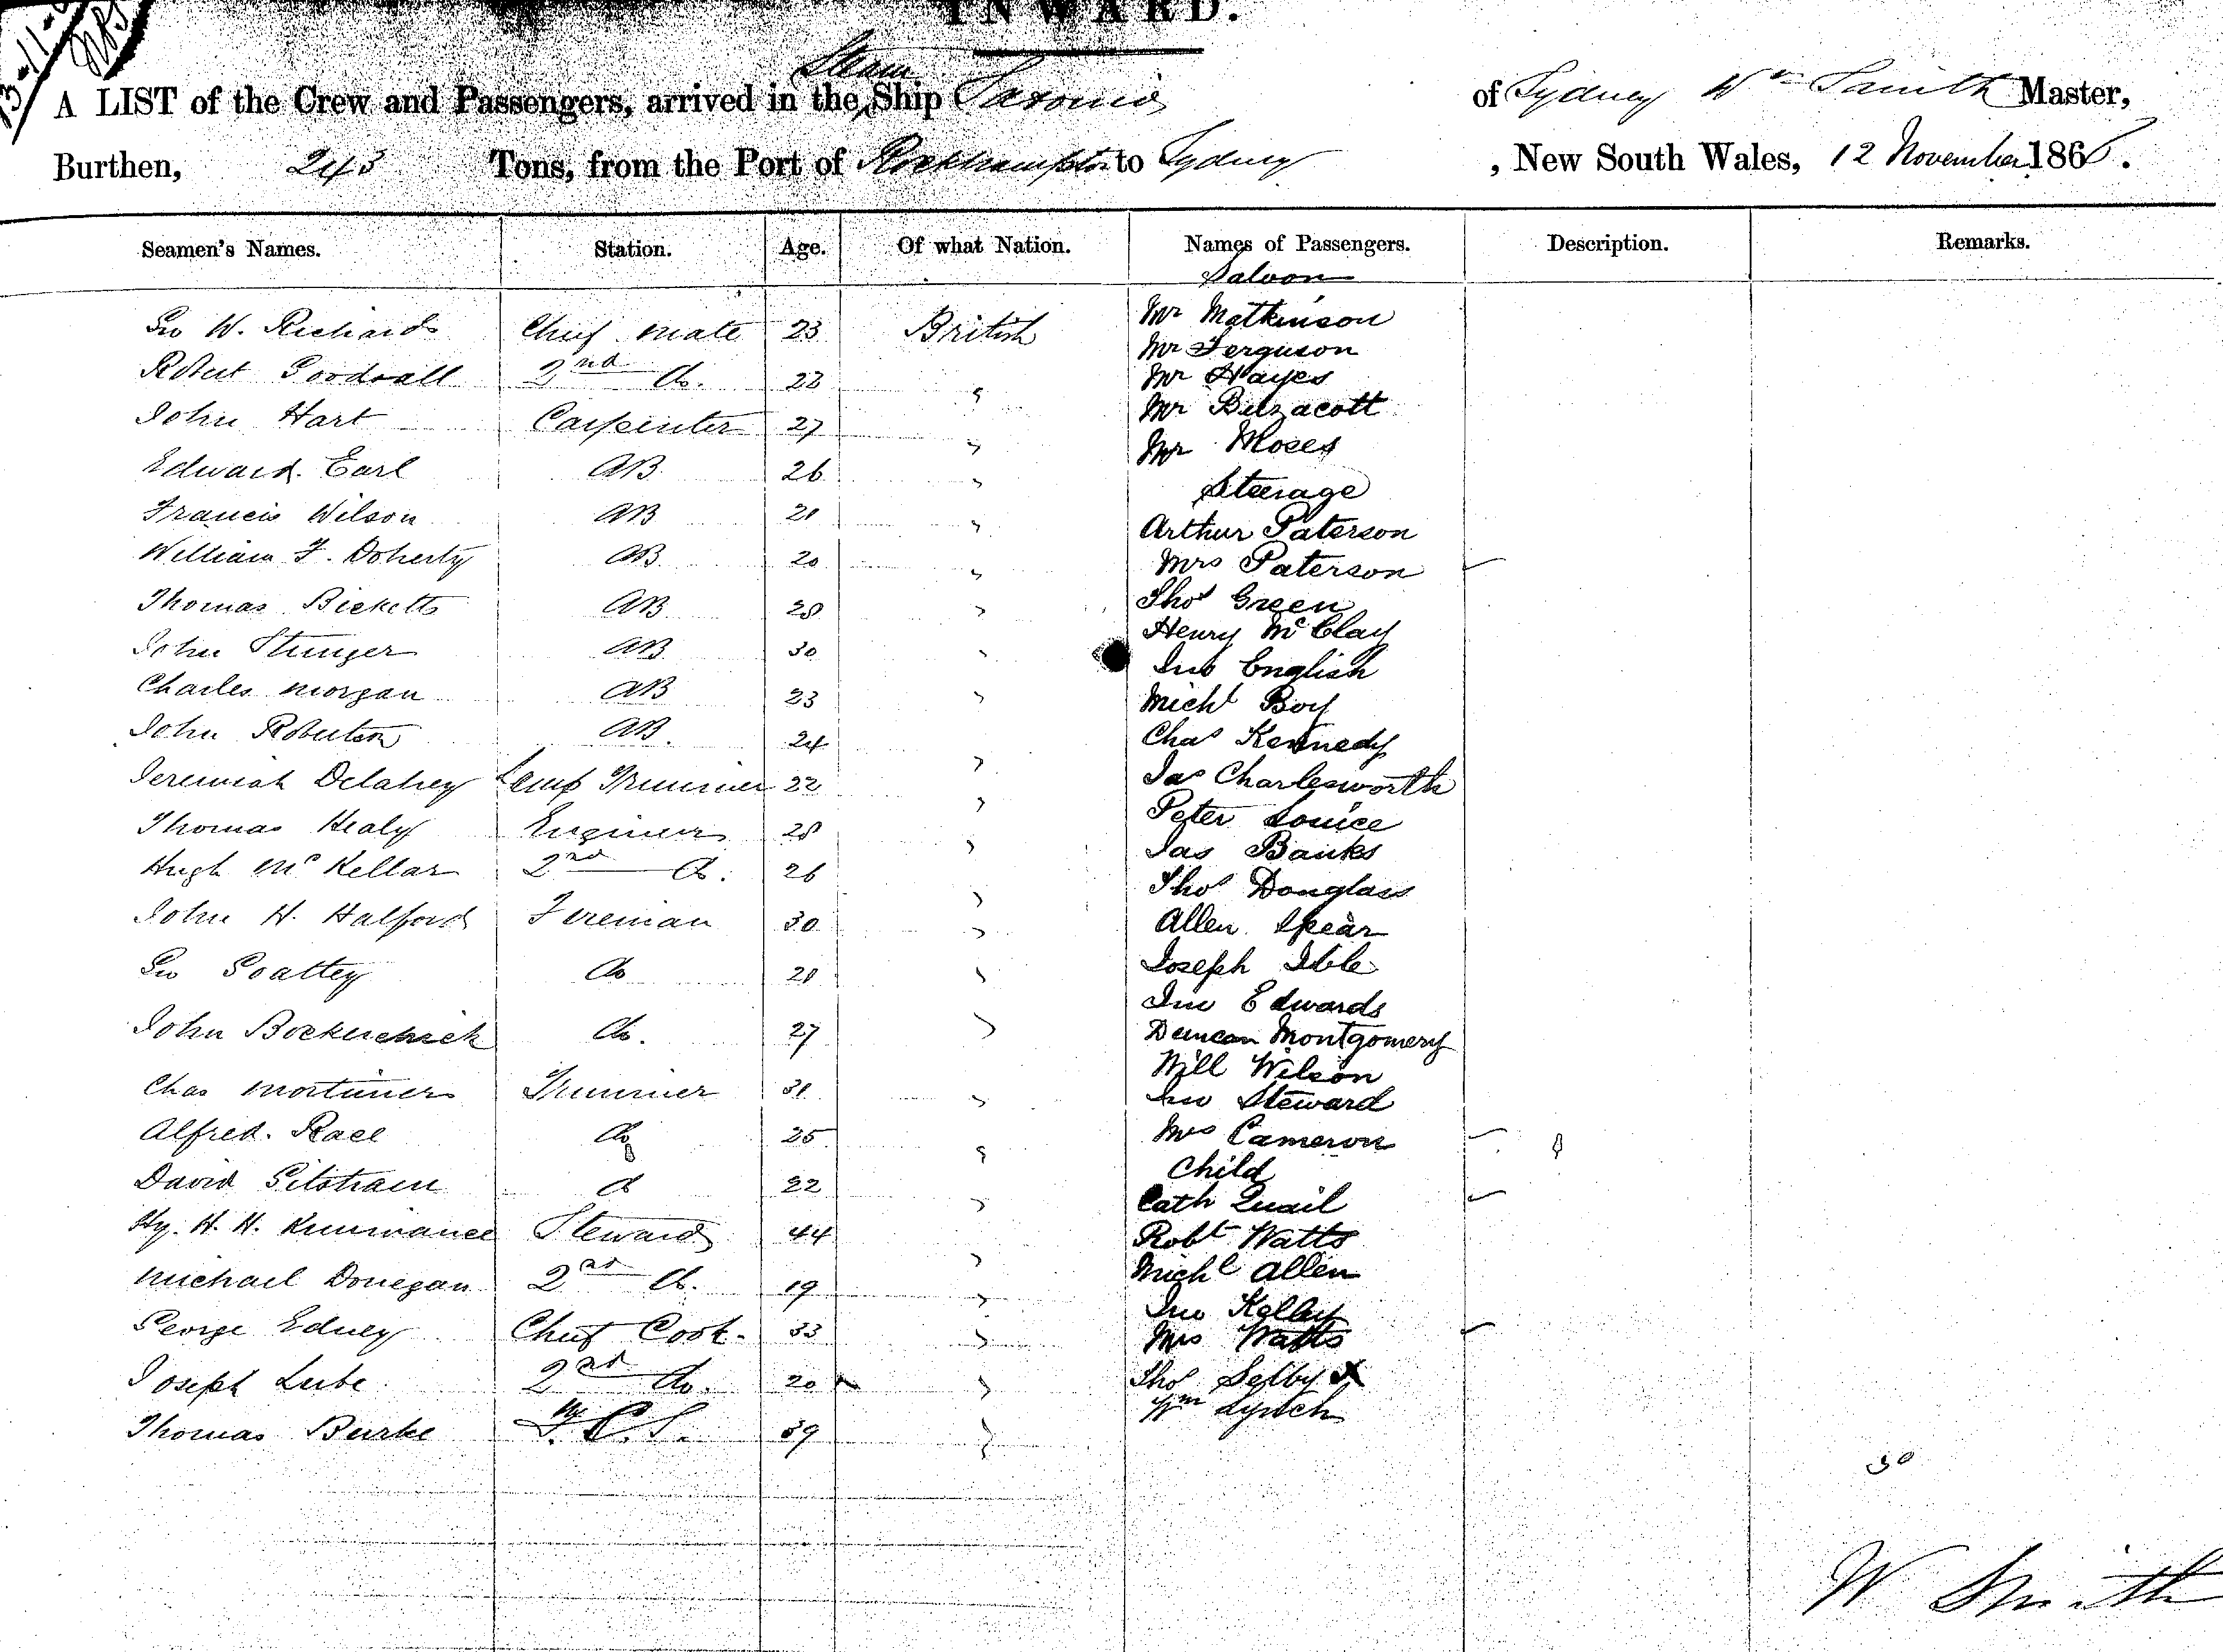 INWARD.
Steam
A LIST of the Crew and Passengers, arrived in the Ship of Sydney Wm Smith Master,
Burthen, 243 Tons, from the Port of Rockhampton to Sydney , New South Wales, 12 November 1866.
Seamen's Names. Station. Age. Of what Nation. Names of Passengers. Description. Remarks.
Saloon
Geo W. Richards Chief Mate 23 British Mr Matkinson
Mr Ferguson
Robert Goodsall 2nd Do. 22 " Mr Hayes
John Hart Carpenter 27 " Mr Buzacott
Mr Moses
Edward Earl AB 26 " Steerage
Francis Wilson AB 21 " Arthur Paterson
William F. Doherty AB 20 " Mrs Paterson
Thomas Ricketts AB 28 " Thos Green
Henry McClay
John AB 30 " Jno English
Charles Morgan AB 23 " Michl Boy
John Robertson AB. 24 Chas Kennedy
Jeremiah Delahey Lamp Trimmer 22 " Jas Charlesworth
Thomas Healy Engineer 28 " Peter
Jas Banks
Hugh McKellar 2nd Do. 26 " Thos Douglass
John H. Halford Fireman 30 " Allen Spear
Geo Do 28 " Joseph
Jno Edwards
John Do. 27 " Duncan Montgomery
Will Wilson
Chas Mortimer Trimmer 31 " Jno Steward
Alfred Do 25 " Mrs Cameron
David Do 22 " Child
Cath Quail
Hy. H. H. Steward 44 " Robt Watts
Michael Donegan 2nd Do. 19 " Michl Allen
Jno Kelley
George Edney Chief Cook. 33 " Mrs Watts
Joseph 2nd Do. 20 " Thos Selby X
Thomas Burke 39 " Wm Lynch
30
W Smith